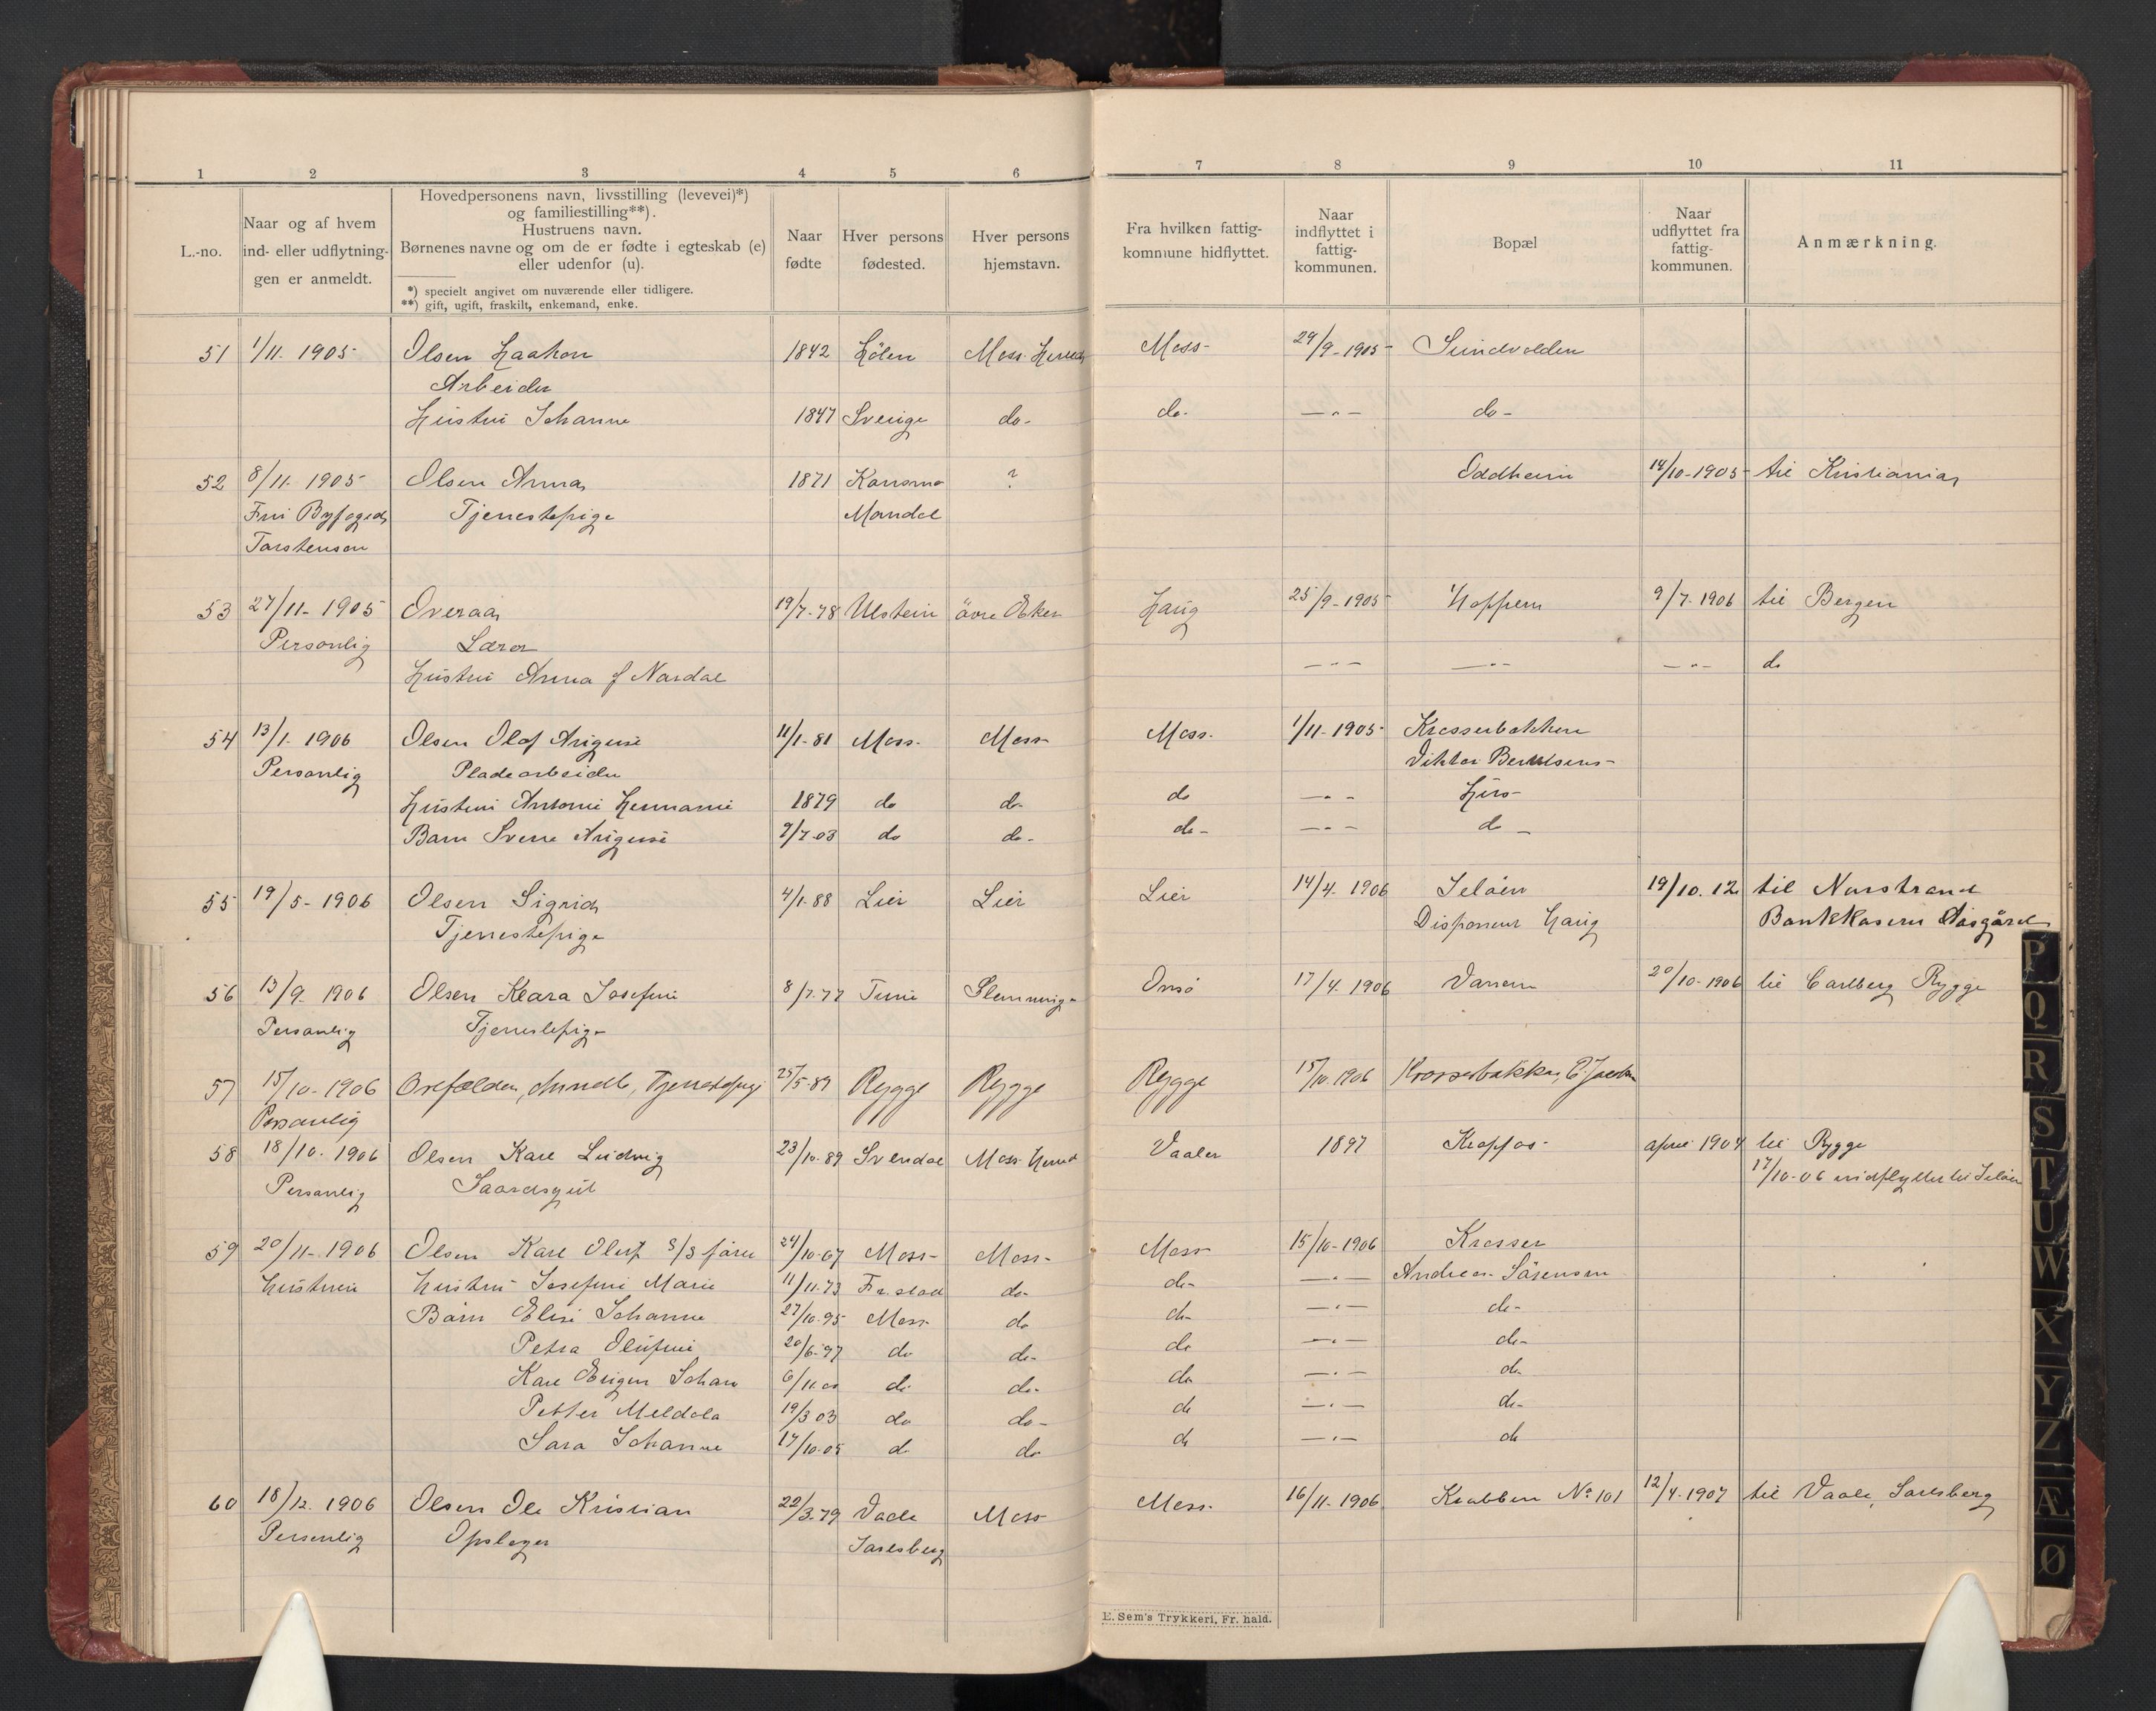 1 2 3 4 5 6 7 8 9 10 11
L.-no.
Naar og af hvem
ind- eller udflytnin-
gen er anmeldt.
Hovedpersonens navn, livsstilling (levevei)*)
og familiestilling**).
Hustruens navn.
Børnenes navne og om de er fødte i egteskab (e)
eller udenfor (u).
*) specielt angivet om nuværende eller tidligere.
**) gift, ugift, fraskilt, enkemand, enke.
Naar
fødte
Hver persons
fødested.
Hver persons
hjemstavn.
Fra hvilken fattig-
kommune hidflyttet.
Naar
indflyttet i
fattig-
kommunen.
Bopæl
Naar
udflyttet fra
fattig-
kommunen.
Anmærkning.
51 1/11. 1905 Olsen Haakon 1842 Hölen Moss Herred Moss 29/9-1905 Sundvolden
Arbeider
Hustru Johanne 1847 Sverige do- do- —"— do-
52 8/11. 1905 Olsen Anna 1871 ? Oddheim 14/10-1905 til Kristiania
Fru Byfoged Tjenestepige Mandal
Torstensen
53 27/11- 1905 Overaa 19/7-78 Ulstein övre Eker Haug 25/9-1905 Hoppern 9/7-1906 til Bergen
Personlig Lærer
Hustru Anna f Nordal —"— —"— —"— do
54 13/1. 1906 Olsen Olaf August 11/1-81 Moss. Moss Moss. 1/11-1905 Krosserbakken
Personlig Pladearbeider Viktor Berntsens
Hustru Antonie Hermanie 1879 do do- do —"— Hus
Barn Sverre August 9/7-03 do do- do- —"— do-
55 19/5- 1906 Olsen Sigrid 4/1-88 Lier Lier Lier 14/4. 1906 Jelöen 19/10. 12 til Norstrand
Tjenestepige Disponent Haug Bankkaserer Aasgård
56 13/9. 1906 Olsen Klara Josefine 8/7-77 Tune Slemminge Onsö 17/4. 1906 Vanem 20/10-1906 til Carlberg Rygge
Personlig Tjenestepige
57 15/10-1906 Orefælden, Amunda, Tjenestepige 25/5-89 Rygge Rygge Rygge 15/10.1906 Krosserbakken,
Personlig
58 18/10. 1906 Olsen Karl Ludvig 23/10-89 Svendal Moss Herred Vaaler 1897 Kropfos april 1904 til Rygge
Personlig Gaardsgut 17/10-06 indflyttet til Jelöen
59 20/11- 1906 Olsen Karl Oluf S/S förer 24/10-67 Moss- Moss- Moss 15/10-1906 Krosser
Hustruen Hustru Josefine Marie 11/11-73 Fr.stad do- do- —"— Andreas Sörensen
Barn Elise Johanne 27/10-95 Moss do do- —"— do-
Petra Olufine 20/6-97 do do- do —"— do-
Karl Eugen Johan 6/11.00 do do- do —"— do
Petter Meldola 19/3 03 do do- do —"— do-
Sara Johanne 17/10-05 do do do —"— do
60 18/12. 1906 Olsen Ole Kristian 22/3-79 Vaale Moss Moss. 16/11-1906 Krabben No 101 12/4-1907 til Vaale, Jarlsberg
Personlig Opslager Jarlsberg
E. Sem's Trykkeri, Fr. hald.
P
Q
R
S
T
U
W
X
Y
Z
Æ
Ø